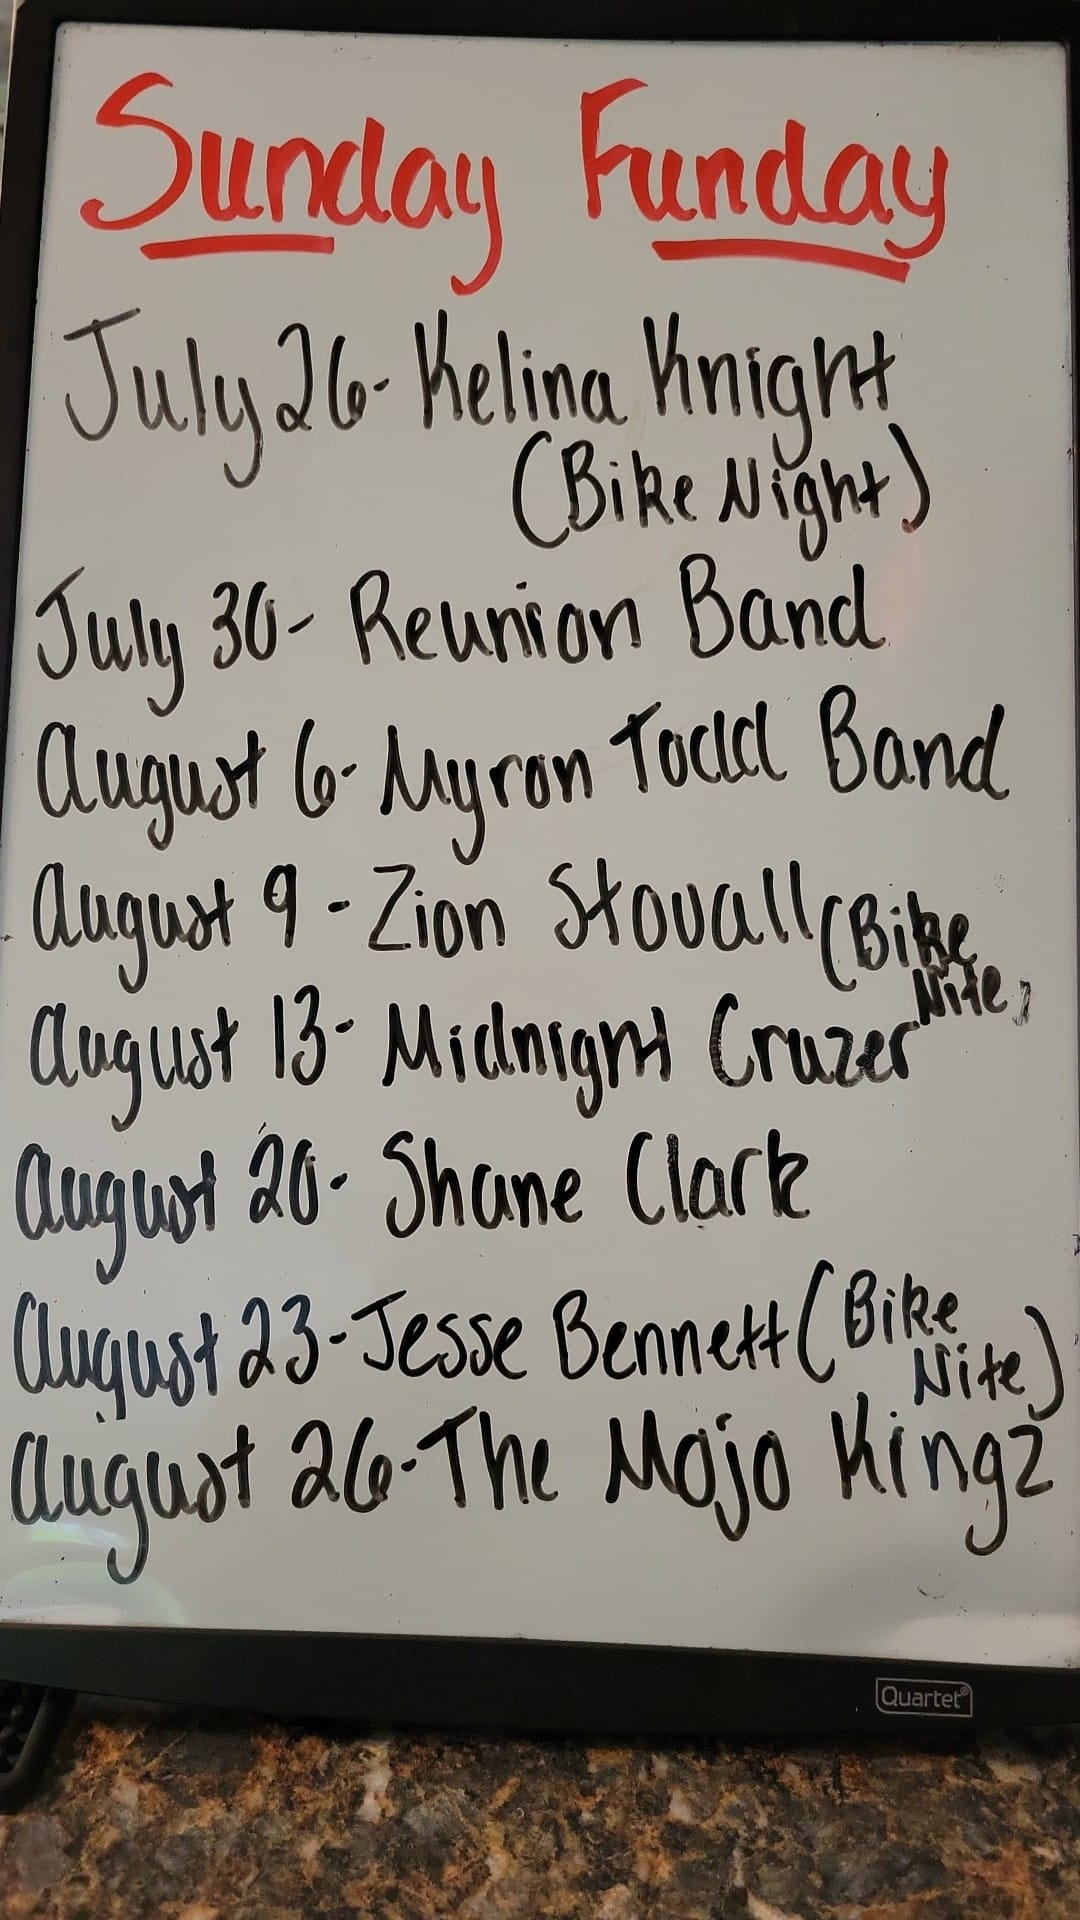 Sunday Funday
July 26- Kelina Knight
(Bike Night)
July 30- Reunion Band
August 6- Myron Todd Band
August 9- Zion Stovall (Bike
Nite)
August 13- Midnight Cruzer
August 20- Shane Clark
August 23- Jesse Bennett (Bike
Nite)
August 26- The Mojo Kingz
Quartet®